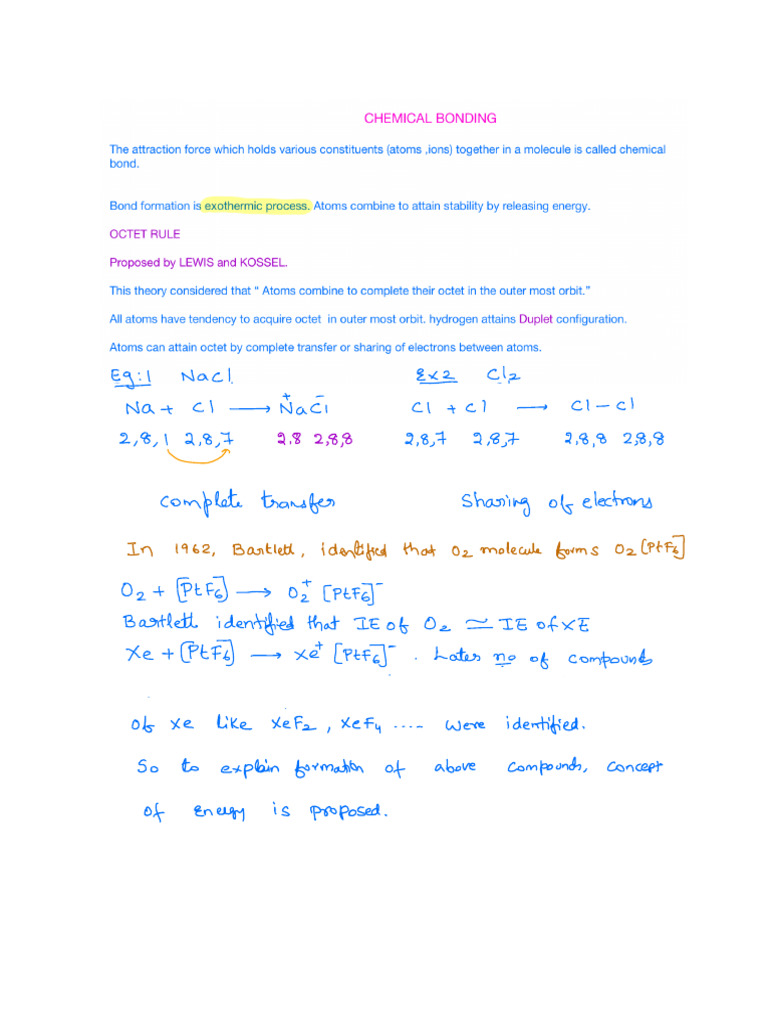 CHEMICAL BONDING
The attraction force which holds various constituents (atoms ,ions) together in a molecule is called chemical
bond.
Bond formation is exothermic process. Atoms combine to attain stability by releasing energy.
OCTET RULE
Proposed by LEWIS and KOSSEL.
This theory considered that “ Atoms combine to complete their octet in the outer most orbit.”
All atoms have tendency to acquire octet in outer most orbit. hydrogen attains Duplet configuration.
Atoms can attain octet by complete transfer or sharing of electrons between atoms.
Eg:1 NaCl Ex2 Cl₂
Na + Cl ⟶ Na⁺Cl⁻ Cl + Cl ⟶ Cl – Cl
2,8,1 2,8,7 2,8 2,8,8 2,8,7 2,8,7 2,8,8 2,8,8
complete transfer Sharing of electrons
In 1962, Bartlett, identified that O₂ molecule forms O₂[PtF₆]
O₂ + [PtF₆] ⟶ O₂⁺ [PtF₆]⁻
Bartlett identified that IE of O₂ ≃ IE of XE
Xe + [PtF₆] ⟶ Xe⁺ [PtF₆]⁻ . Later no of compounds
of Xe like XeF₂, XeF₄ .... were identified.
So to explain formation of above compounds, concept
of Energy is proposed.